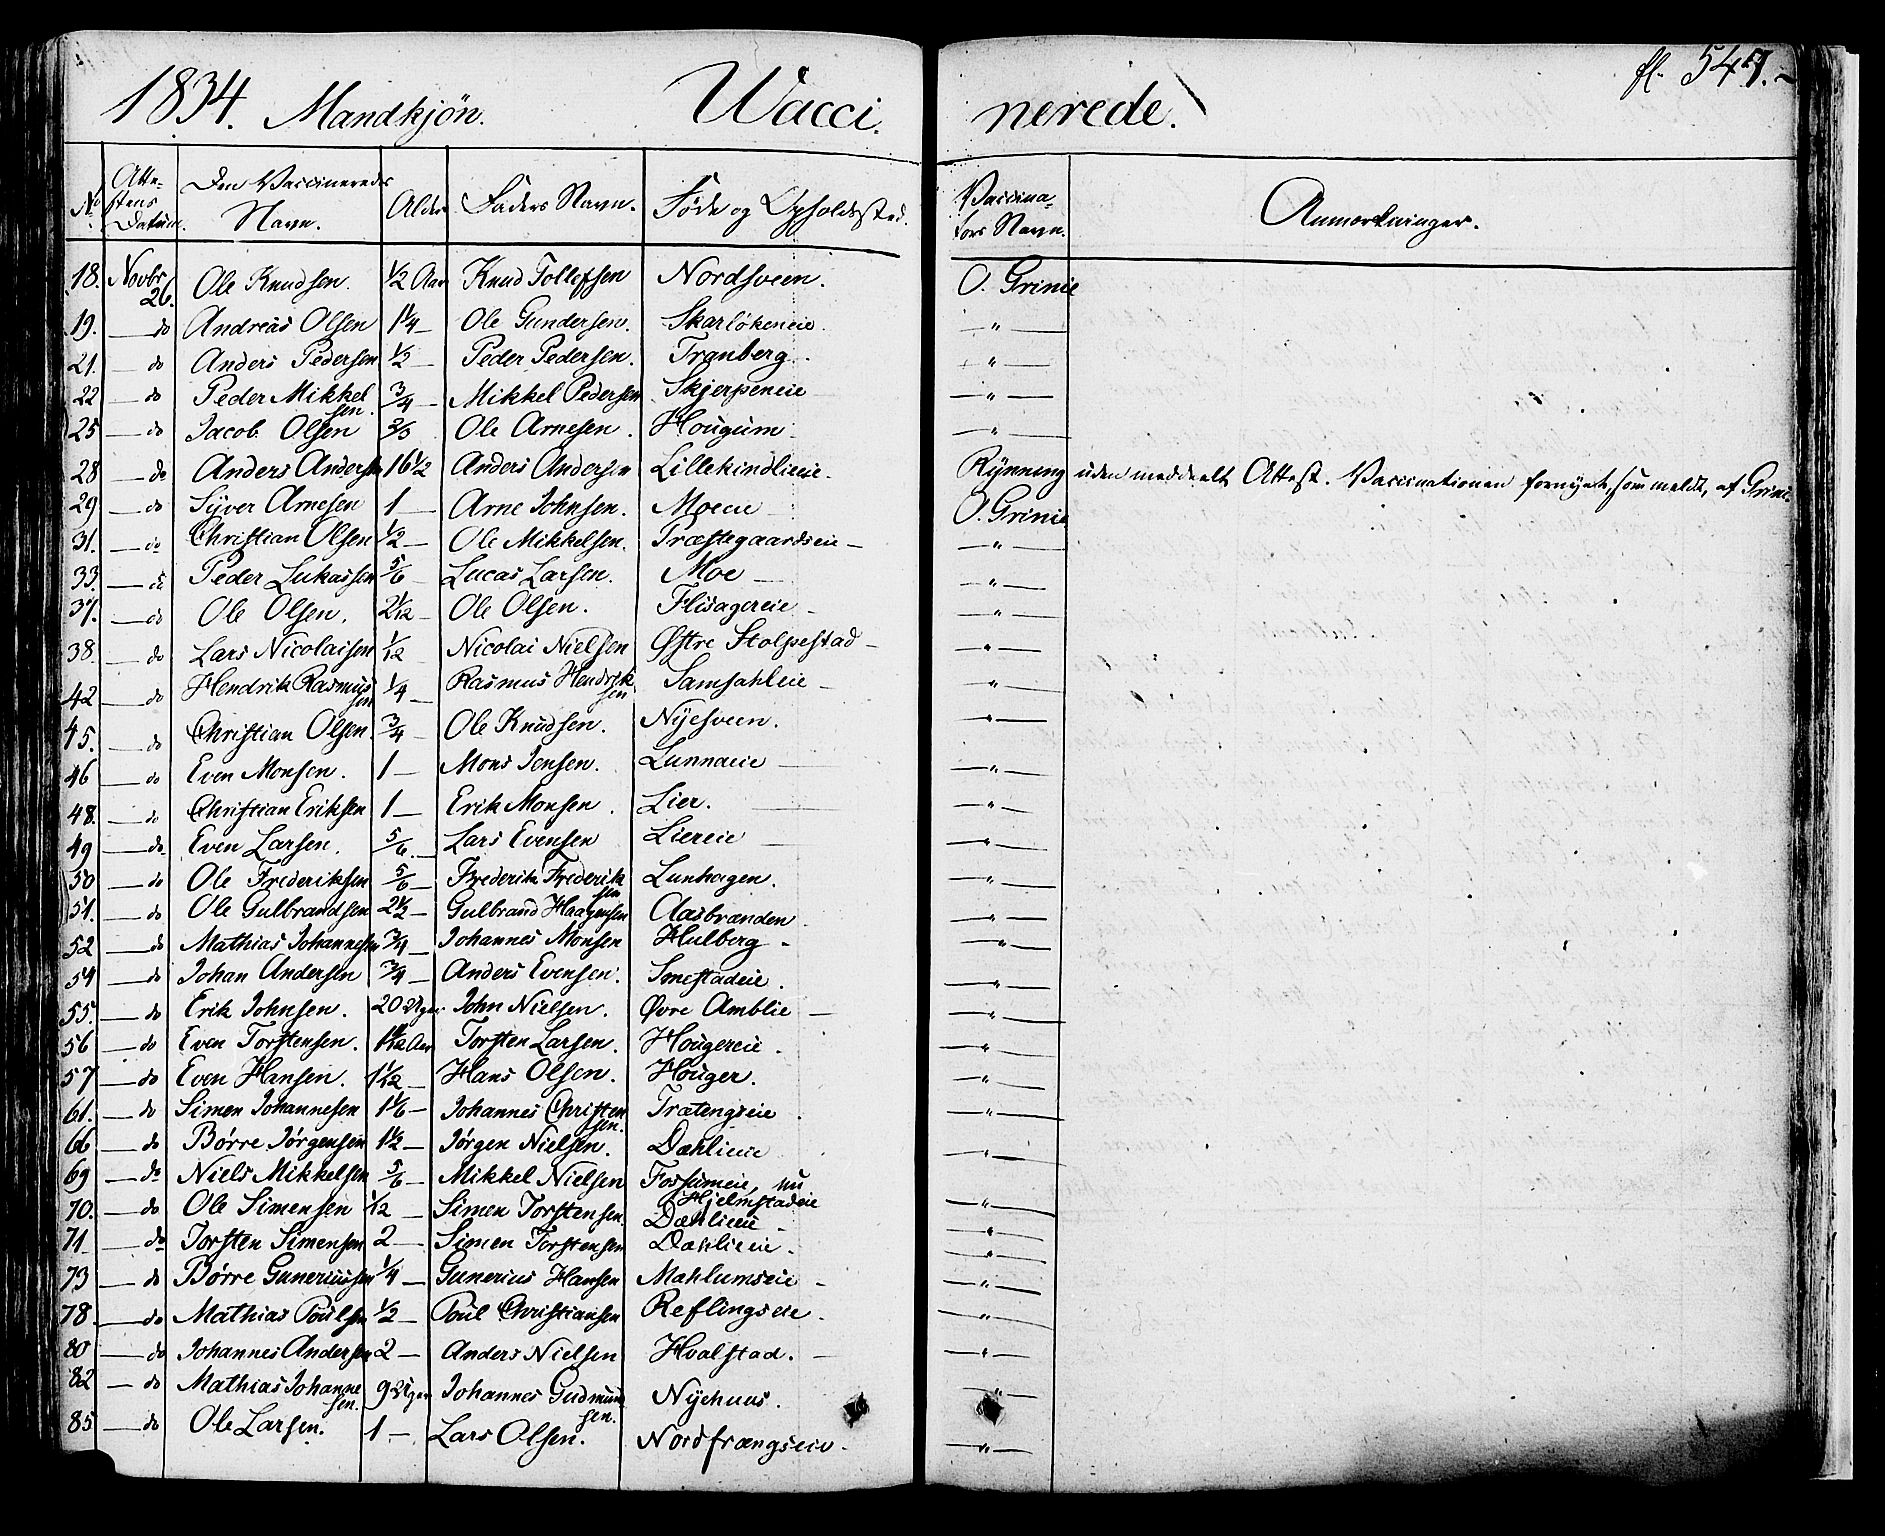 1834. Mandkjön. Wacci nerede. fl. 547.
No Attestens Datum. Den Vaccineredes Navn. Alder Faders Navn. Føde og Opholdssted. Vaccinatørs Navn. Anmærkninger.
18. Novbr 26. Ole Knudsen. ½ Aar Knud Tollefsen Nordsveen. O. Grinie
19. — do Andreas Olsen 1¼ — Ole Gundersen. Skarløkeneie — " —
21. — do Anders Pedersen ½ — Peder Pedersen. Tranberg. — " —
22 — do Peder Mikkelsen. ¾ — Mikkel Pedersen Skjerpeneie — " —
25 — do Jacob Olsen ⅔ Ole Arnesen. Hougum — " —
28 — do Anders Andersen 16½ Anders Andersen Lillekindlieie. Rÿnning uden meddeelt Attest. Vaccinationen fornyet, som meldt, af Grinie
29 — do Syver Arnesen 1 — Arne Johnsen. Moeeie — O. Grinie
31. — do Christian Olsen ½ — Ole Mikkelsen. Præstegaardseie — — " —
33. — do Peder Lukassen ⅚ — Lucas Larsen. Moe — — " —
37. — do Ole Olsen. 2 1/12 — Ole Olsen. Flisagereie — — " —
38. — do Lars Nicolaisen 1/12 Nicolai Nielsen Østre Stolpestad — — " —
42 — do Hendrik Rasmussen ¼ — Rasmus Hendriksen Samsahleie — — " —
45. — do Christian Olsen. ¾ — Ole Knudsen. Nyesveen. — " —
46 — do Even Monsen. 1 — Mons Jensen. Lunnaeie — — " —
48. — do Christian Eriksen 1 — Erik Monsen. Lier. — " —
49 — do Even Larsen. ⅚ — Lars Evensen Liereie — " —
50 — do Ole Frederiksen ⅚ — Frederik Frederiksen Lunhagen. — " —
51. — do Ole Gulbrandsen 2½ — Gulbrand Haagensen Aasbrænden — " —
52 — do Mathias Johannesen ¾ — Johannes Monsen Hulberg — — " —
54 — do Johan Andersen ¾ — Anders Evensen. Smestadeie. — " —
55. — do Erik Johnsen. 20 Uger John Nielsen. Øvre Amblie — — " —
56 — do Even Torstensen. Aar Torsten Larsen. Hougereie. — " —
57 — do Even Hansen. 1 1/12 — Hans Olsen. Houger. — " —
61. — do Simen Johannesen 1⅙ — Johannes Christensen. Trætengseie. — " —
66 — do Børre Jörgensen 1½ — Jörgen Nielsen. Dæhlieie — " —
69 — do Niels Mikkelsen ⅚ — Mikkel Nielsen Fossumeie, nu Hjelmstadeie — " —
70. — do Ole Simensen 1/12 — Simen Torstensen Dæhlieie — — " —
71 — do Torsten Simensen 2 — Simen Torstensen Dæhlieie. — " —
73 — do Børre Guneriussen ¼ — Gunerius Hansen Mahlumseie — — " —
78. — do Mathias Poulsen ½ — Poul Christiansen Reflingseie. — " —
80 — do Johannes Andersen 2 — Anders Nielsen Hvalstad. — — " —
82 — do Mathias Johannesen. 9 Uger Johannes Gudmundsen. Nyehuus. — " —
85 — do Ole Larsen. 1 — Lars Olsen. Nordfrængseie. — " —